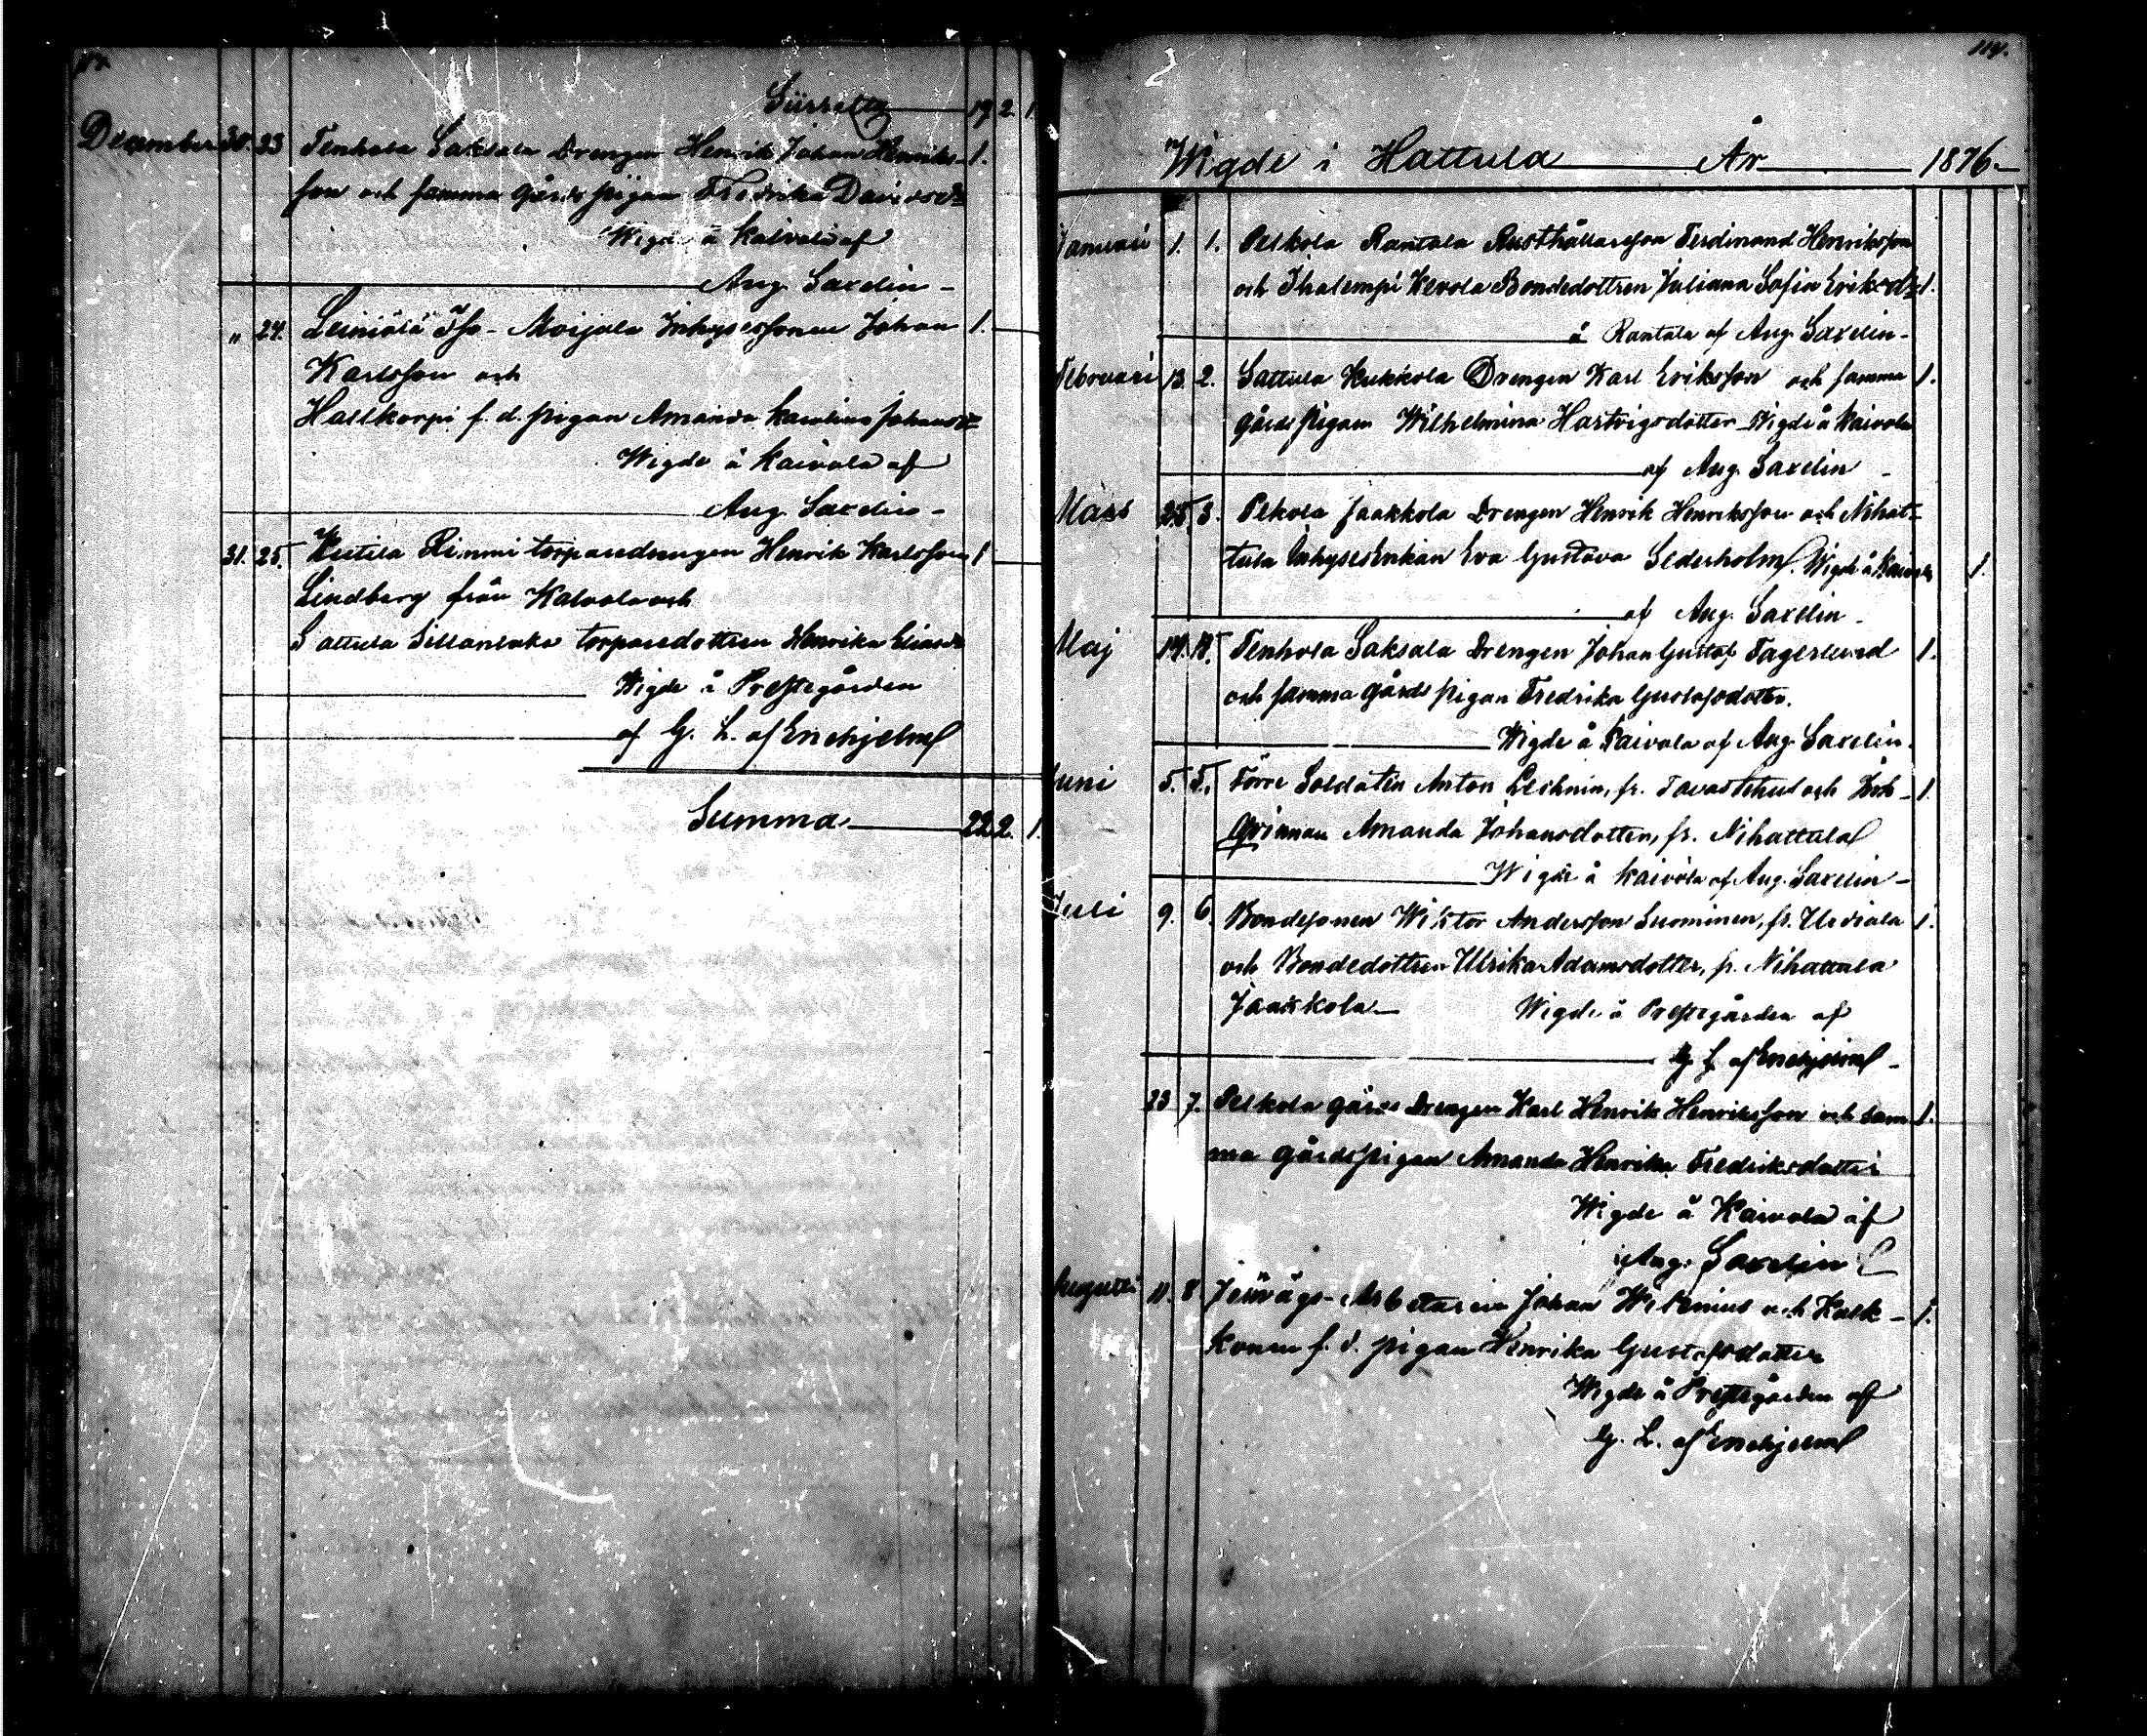 Siirretty 19. 2. 1
December 30. 23 Tenhola Saksala Drengen Henrik Johan Henriks- 1.
son och samma gårds pigan Fredrika Davidsdr
Wigde å Kaivola af
Aug. Saxelin -
" 24. Leiniälä Iso-Moijala Inhysessonen Johan 1.
Karlsson och
Hallkorpi f. d. pigan Amanda Karolina Johansdr
Wigde å Kaivola af
Aug. Saxelin -
31. 25. Rimmi torparedrengen Henrik Karlsson 1
Lindberg från Kalvola och
Sattula Sillanlaka torparedottren Henrika Eliasdr
Wigde å Prestegården
af G. L. af Enehjelm
Summa 22. 2. 1.
114.
Wigde i Hattula År 1876.
Januari 1. 1. Pelkola Rantala Rusthållaresson Ferdinand Henriksson
och Ihalempi Kerola Bondedottren Juliana Sofia Eriksdr 1.
å Rantala af Aug. Saxelin -
Februari 13. 2. Sattula Kukkola Drengen Karl Eriksson och samma 1.
gårds pigan Wilhelmina Hartvigsdotter Wigde å Kaivola
af Aug. Saxelin -
Mars 25 3. Pekola Jaakkola Drengen Henrik Henriksson och Nihat-
tula Inhyses Enkan Eva Gustava Sederholm. Wigde å Kaivola 1.
af Aug. Saxelin -
Maj 14. Tenhola Saksala Drengen Johan Gustaf Fagerlund 1.
och samma gårds pigan Fredrika Gustafsdotter.
Wigde å Kaivola af Aug. Saxelin.
Juni 5. 5. Förre Soldaten Anton fr. Tavastehus och Inh- 1.
qvinnan Amanda Johansdotter, fr. Nihattula
Wigde å Kaivola af Aug. Saxelin -
Juli 9. 6. Bondesonen Wiktor Andersson Suominen, fr. Urdiala 1.
och Bondedottren Ulrika Adamsdotter, fr. Nihattula
Jaakkola - Wigde å Prestegården af
G. L. af Enehjelm -
23 7. Pelkola gårds Drengen Karl Henrik Henriksson och sam 1.
ma gårds pigan Amanda Henrika Fredriksdotter
Wigde å Kaivola af
Aug. Saxelin
Augusti 11. 8 Jernvägs-Arbetaren Johan och Kalk- 1.
konen f. d. pigan Henrika Gustafsdotter
Wigde å Prestegården af
G. L. af Enehjelm